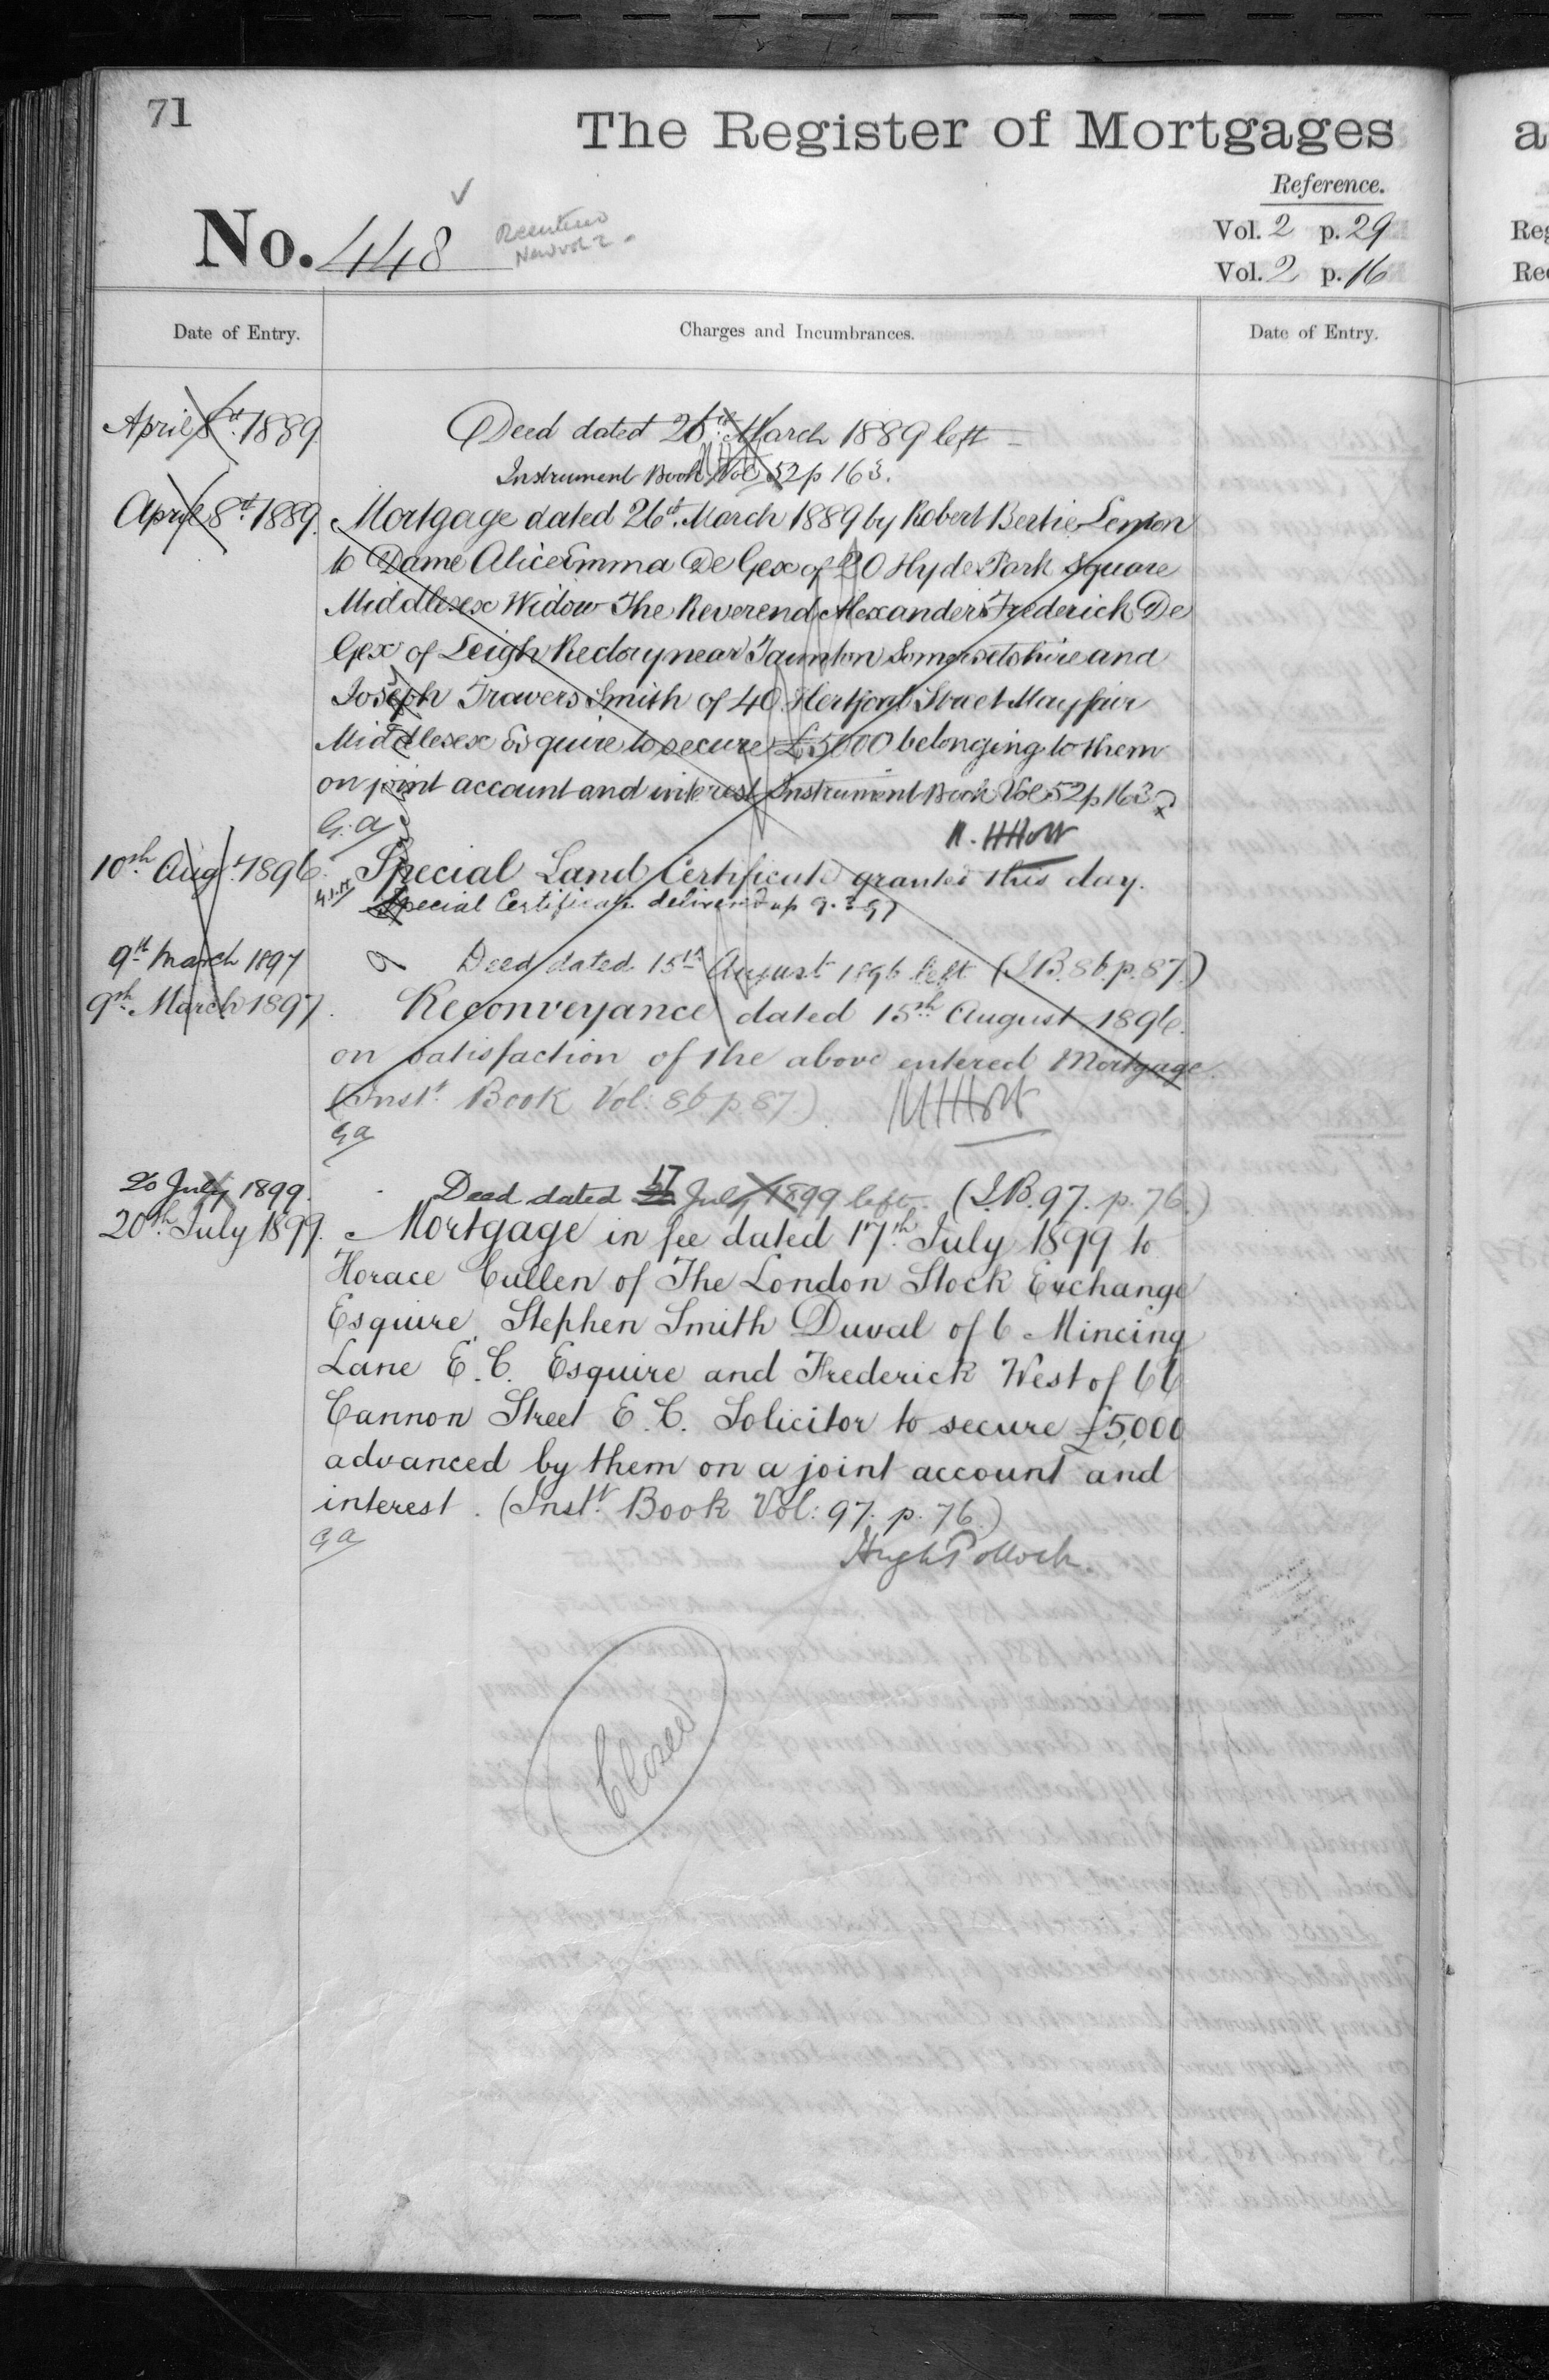 71
The Register of Mortgages
Reference.
No. 448
New vol 2.
Vol. 2 p. 29
Vol. 2 p. 16
Date of Entry.
Charges and Incumbrances.
Date of Entry.
April 8th 1889
Deed dated 26th March 1889 left
Instrument Book Vol 52 p 163.
April 8th 1889. Mortgage dated 26th March 1889 by Robert Bertie Lemon
to Dame Alice Emma De Gex of 20 Hyde Park Square
Middlesex Widow The Reverend Alexander Frederick De
Gex of Leigh Rectory near Taunton Somersetshire and
Joseph Travers Smith of 40 Hertford Street Mayfair
Middlesex Esquire to secure £5000 belonging to them
on joint account and interest Instrument Book Vol 52 p 163
G.A
10th Augt. 1896. Special Land Certificate granted this day.
Special Certificate delivered up 9.3.97
9th March 1897 Deed dated 15th August 1896 left (I.B. 86 p. 87.)
9th March 1897. Reconveyance dated 15th August 1896.
on satisfaction of the above entered Mortgage.
(Instt. Book Vol: 86 p 87.)
G A
20 July 1899. Deed dated 17 July 1899 left. (I.B. 97. p. 76.)
20th July 1899. Mortgage in fee dated 17th July 1899 to
Horace Cullen of The London Stock Exchange
Esquire, Stephen Smith Duval of 6 Mincing
Lane E.C. Esquire and Frederick West of 66
Cannon Street E.C. Solicitor to secure £5,000
advanced by them on a joint account and
interest. (Instt. Book Vol: 97. p. 76.)
G A
Hugh Pollock.
Closed
a
Reg
Re